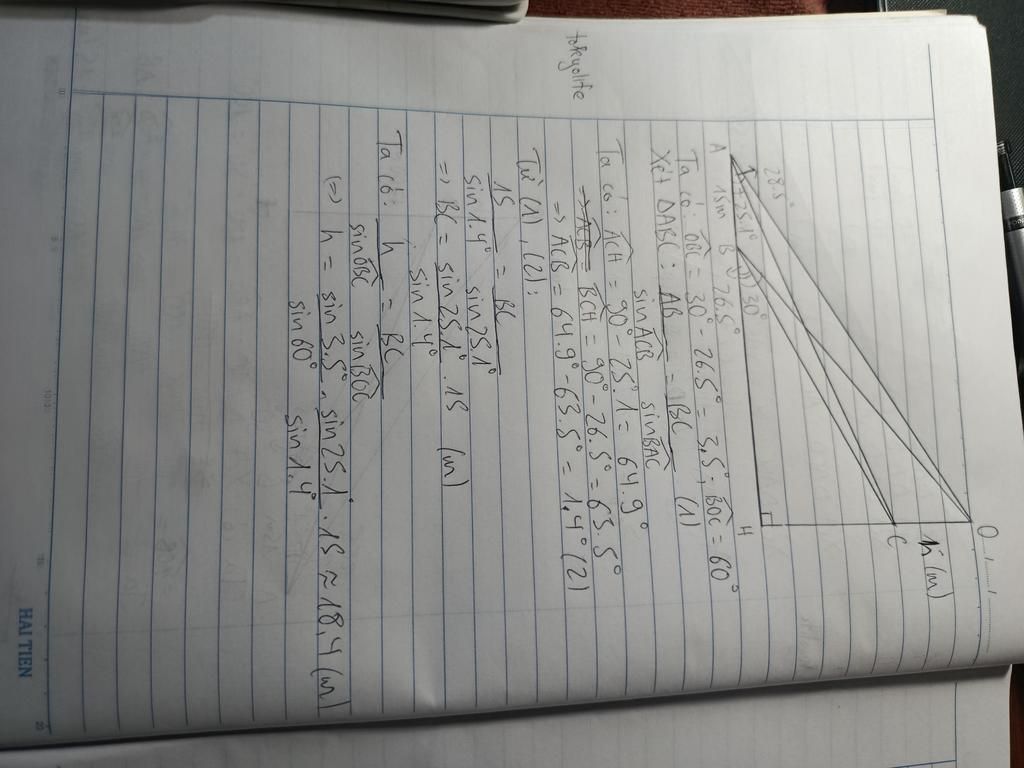 O
h (m)
C
28.5°
25.1°
30°
A 15m B 26.5° H
Ta có: OBC = 30° 26.5° = 3,5° . BOC = 60°
Xét ΔABC: AB / sin ACB = BC / sin BAC (1)
Ta có: ACH = 90° - 25°.1 = 64.9°
=> AB = BCH = 90° - 26.5° = 63.5°
=> ACB = 64.9° - 63.5° = 1,4° (2)
Từ (1), (2):
15 / sin 1.4° = BC / sin 25.1°
=> BC = sin 25.1° / sin 1.4° . 15 (m)
Ta có: h / sin OBC = BC / sin BOC
(=) h = sin 3.5° / sin 60° . sin 25.1° / sin 1.4° . 15 ≈ 18,4 (m)
tokyolife
HAI TIEN